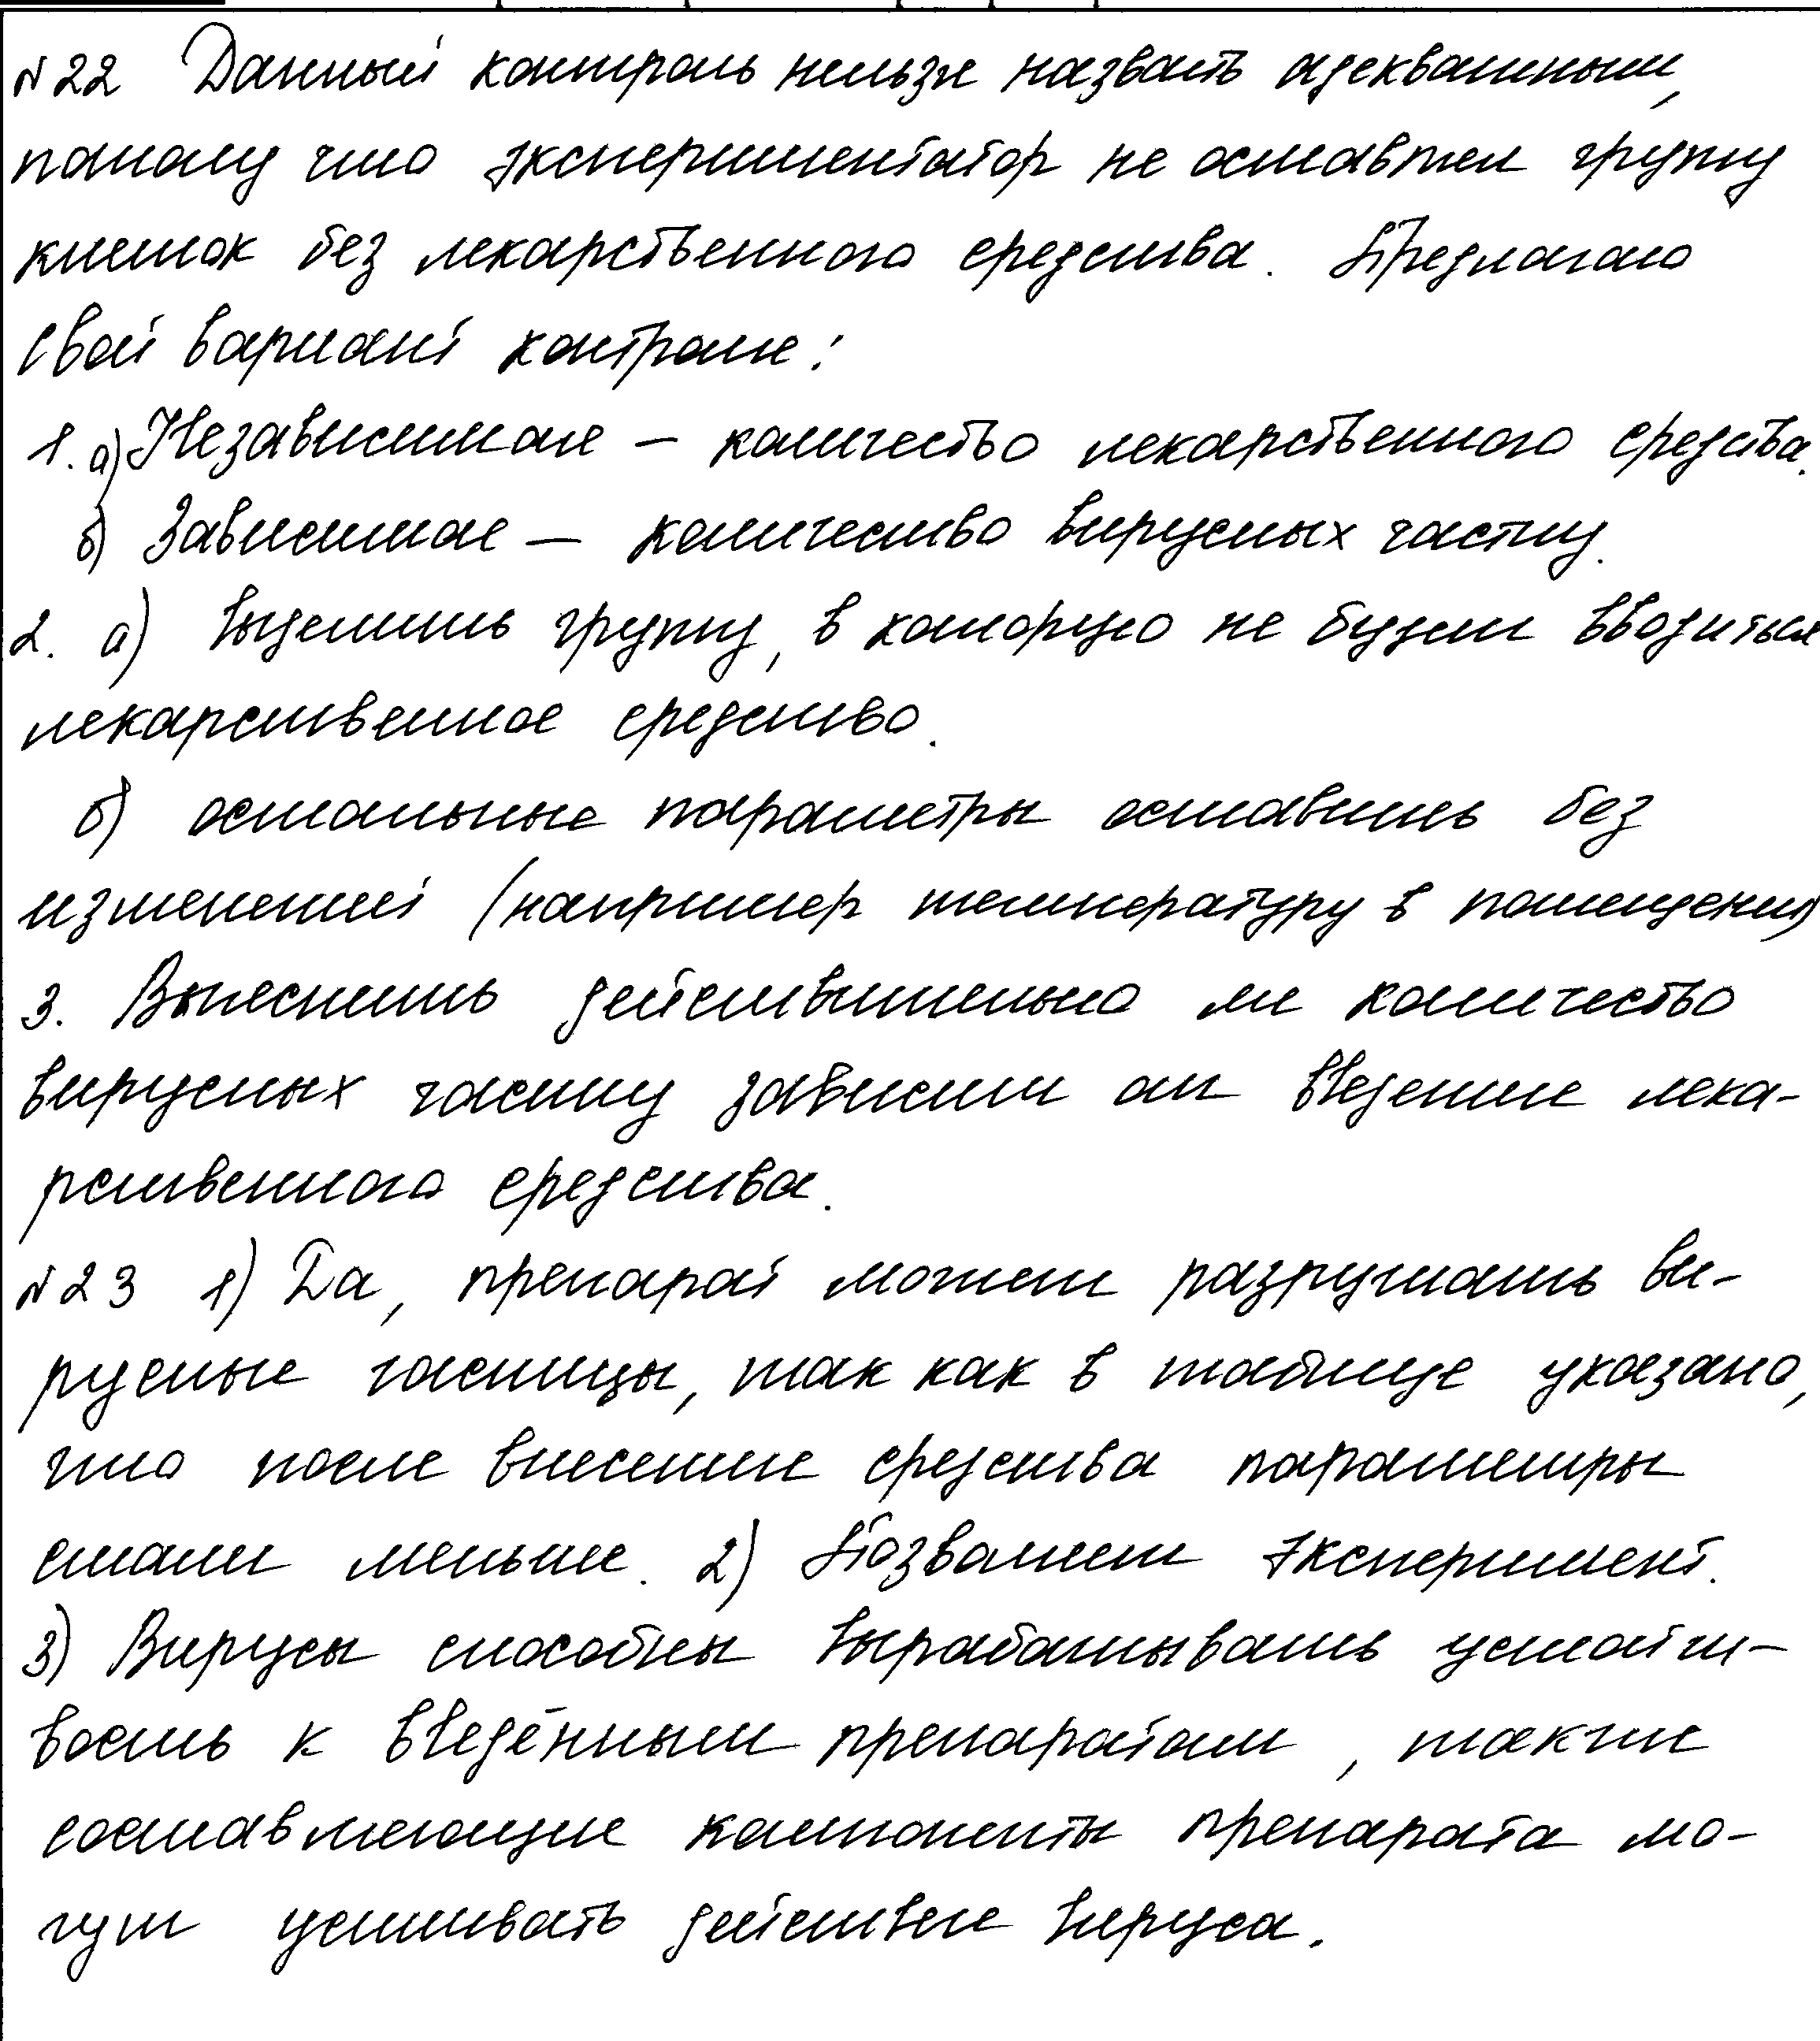 №22 Данный контроль нельзя назвать адекватным,
потому что экспериментатор не оставляет группу
клеток без лекарственного средства. Предлагаю
свой вариант контроля:
1. а) Независимая – количество лекарственного средства.
б) Зависимая – количество вирусных частиц.
2. а) Выделить группу, в которую не будет вводиться
лекарственное средство.
б) остальные параметры оставить без
изменений (например температуру в помещении)
3. Выяснить действительно ли количество
вирусных частиц зависит от введения лека-
рственного средства.
№23 1) Да, препарат может разрушать ви-
русные частицы, так как в таблице указано,
что после внесения средства параметры
стали меньше. 2) Позволяет эксперимент.
3) Вирусы способны вырабатывать устойчи-
вость к введённым препаратам, также
составляющие компоненты препарата мо-
гут усиливать действие вируса.